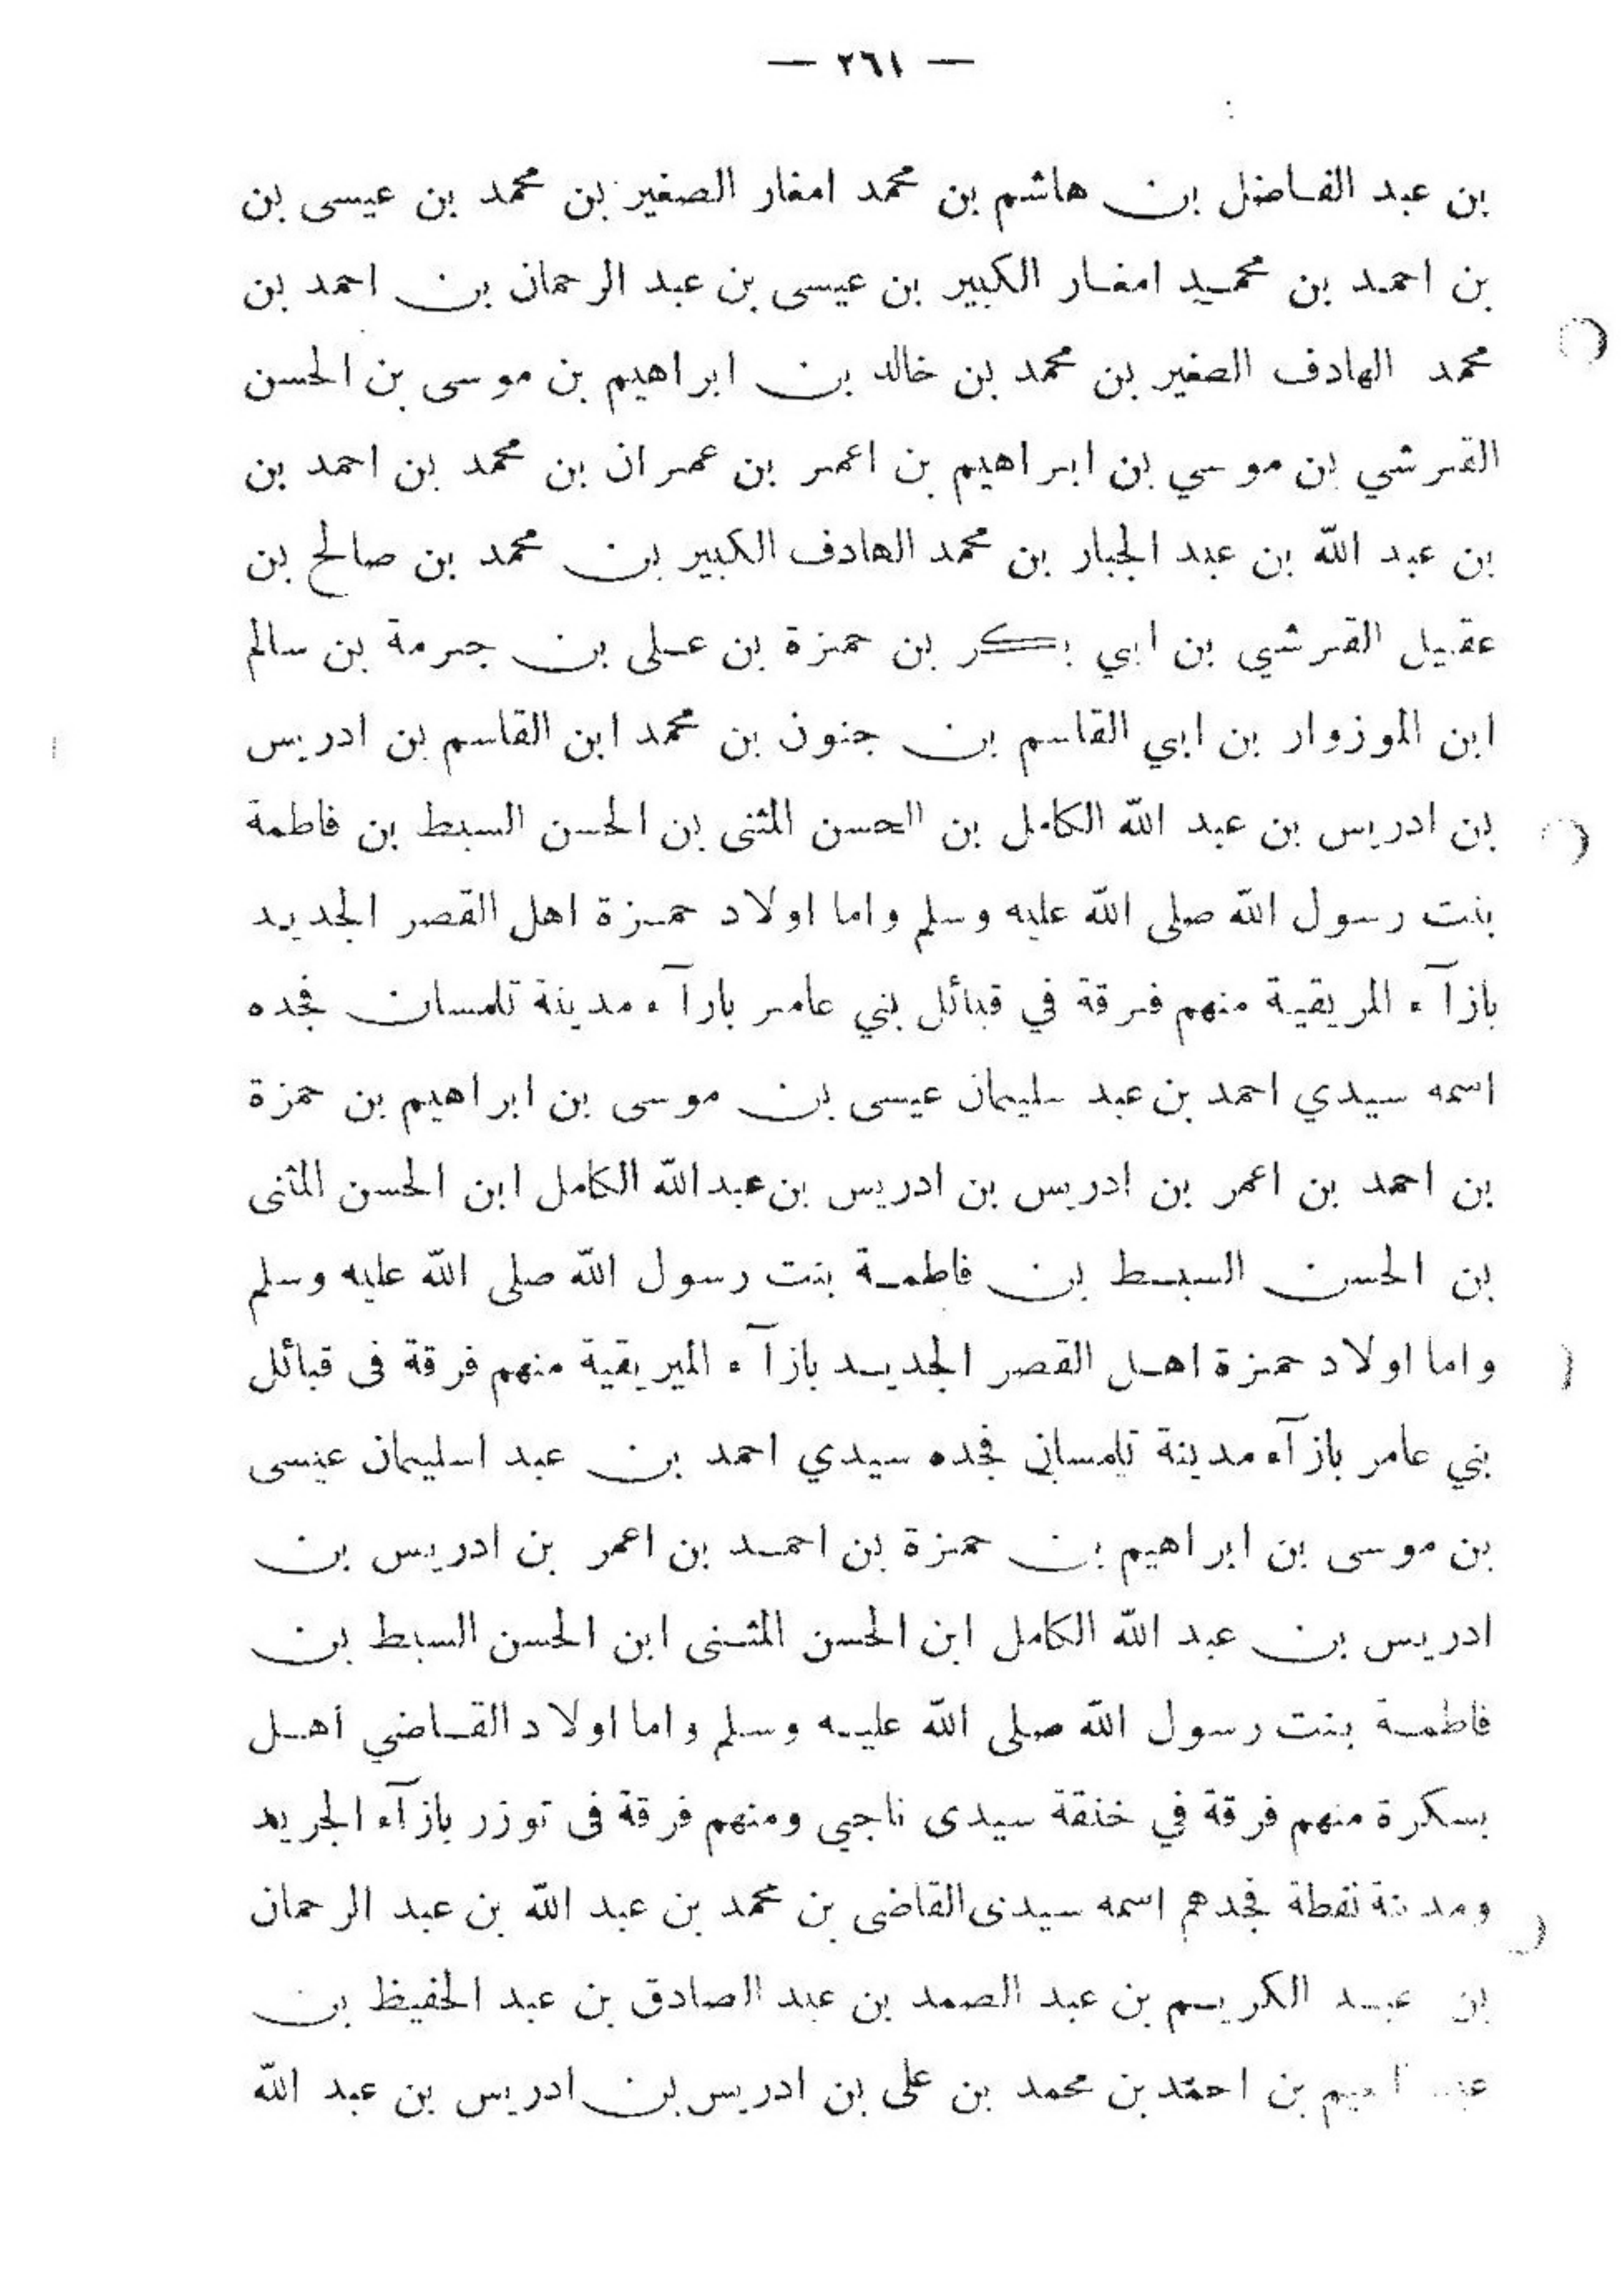 — ٢٦١ —
بن عبد الفاضل بن هاشم بن محمد امغار الصغير بن محمد بن عيسى بن
بن احمد بن محميد امغار الكبير بن عيسى بن عبد الرحمان بن احمد بن
محمد الهادف الصغير بن محمد بن خالد بن ابراهيم بن موسى بن الحسن
القرشي بن موسي بن ابراهيم بن اعمر بن عمران بن محمد بن احمد بن
بن عبد الله بن عبد الجبار بن محمد الهادف الكبير بن محمد بن صالح بن
عقيل القرشي بن ابي بكر بن حمزة بن على بن جرمة بن سالم
ابن الموزوار بن ابي القاسم بن جنون بن محمد ابن القاسم بن ادريس
بن ادريس بن عبد الله الكامل بن الحسن المثنى بن الحسن السبط بن فاطمة
بنت رسول الله صلى الله عليه وسلم واما اولاد حمزة اهل القصر الجديد
بازآء المريقية منهم فرقة في قبائل بني عامر بارآء مدينة تلمسان فجده
اسمه سيدي احمد بن عبد سليمان عيسى بن موسى بن ابراهيم بن حمزة
بن احمد بن اعمر بن ادريس بن ادريس بن عبد الله الكامل ابن الحسن المثنى
بن الحسن السبط بن فاطمة بنت رسول الله صلى الله عليه وسلم
واما اولاد حمزة اهل القصر الجديد بازآء الميريقية منهم فرقة فى قبائل
بني عامر بازآء مدينة تلمسان فجده سيدي احمد بن عبد اسليمان عيسى
بن موسى بن ابراهيم بن حمزة بن احمد بن اعمر بن ادريس بن
ادريس بن عبد الله الكامل ابن الحسن المثنى ابن الحسن السبط بن
فاطمة بنت رسول الله صلى الله عليه وسلم واما اولاد القاضي اهل
بسكرة منهم فرقة في خنقة سيدى ناجي ومنهم فرقة فى توزر بازآء الجريد
ومدينة نفطة فجدهم اسمه سيدى القاضى بن محمد بن عبد الله بن عبد الرحمان
بن عبد الكريم بن عبد الصمد بن عبد الصادق بن عبد الحفيظ بن
بن احمد بن محمد بن على بن ادريس بن ادريس بن عبد الله